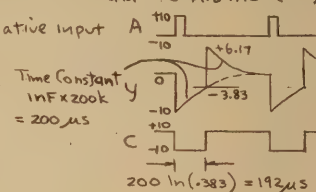 ative input A +10
-10
+6.17
Time Constant
1nF×200k
= 200 μs
y 0
-3.83
-10
+10
C
-10
200 ln(.383) = 192μs